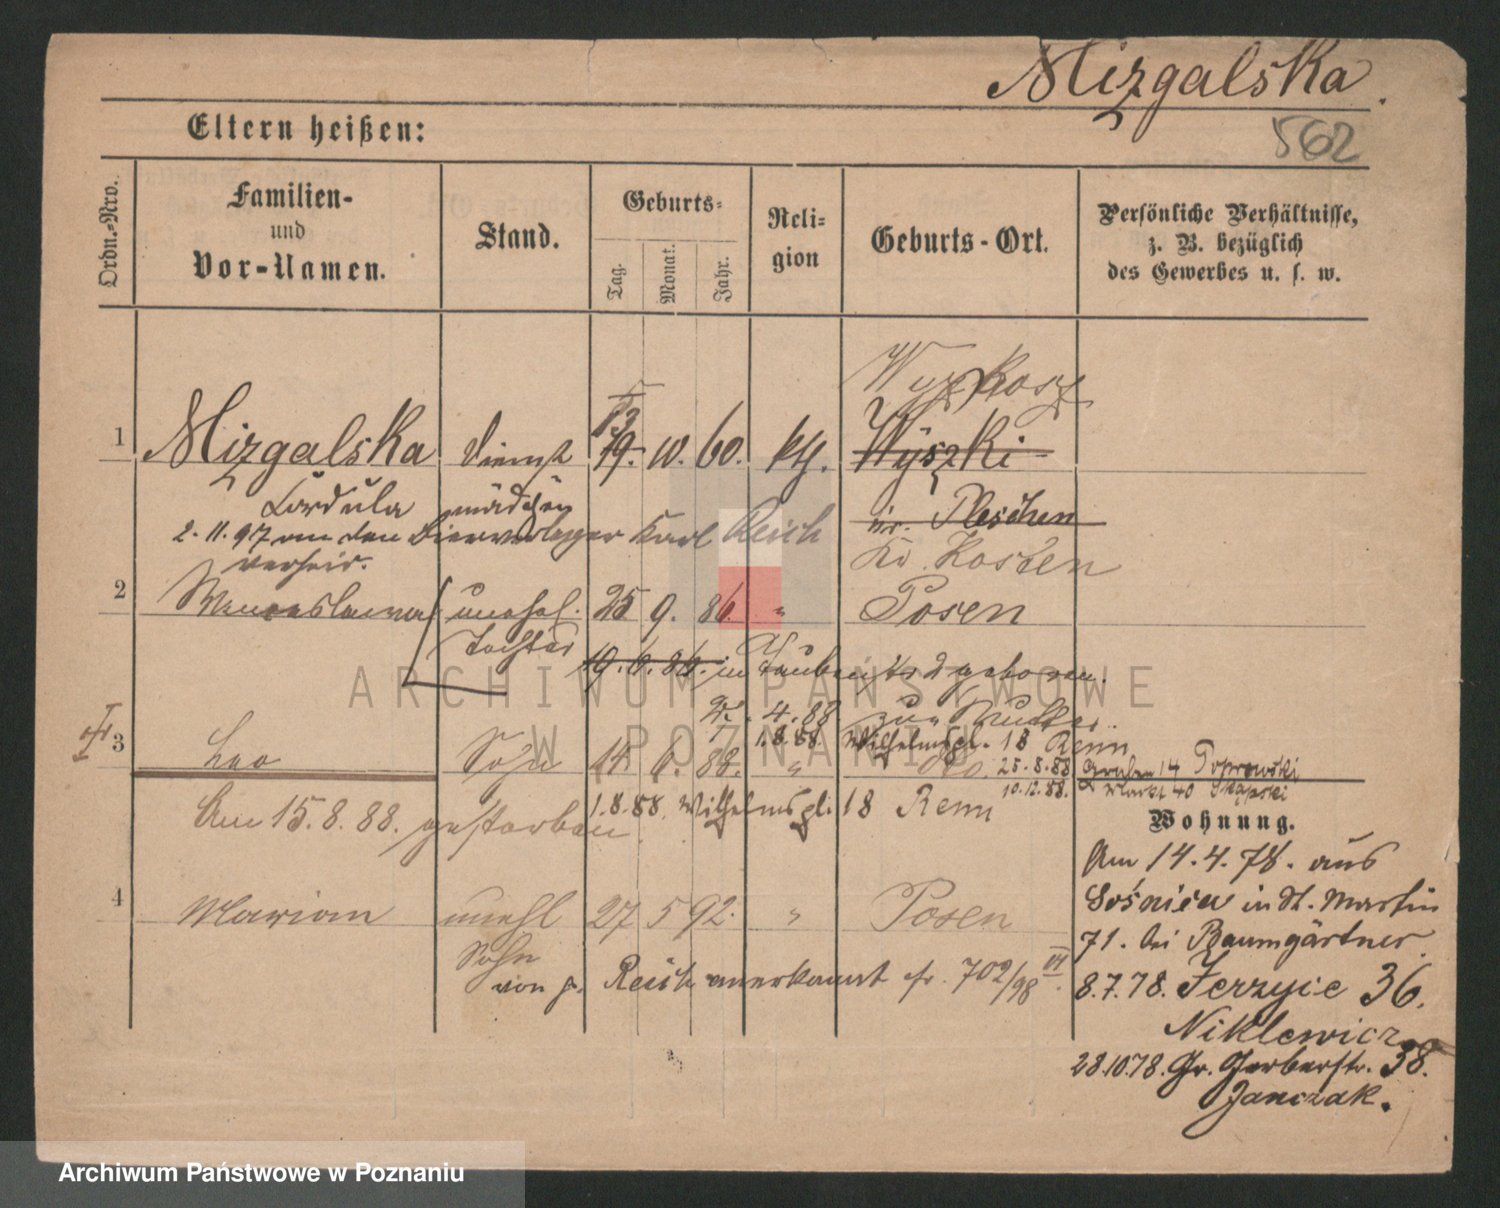 Mizgalska
562
Eltern heißen:
Ordn.-Nro.
Familien-
und
Vor-Namen.
Stand.
Geburts-
Tag.
Monat.
Jahr.
Reli-
gion
Geburts-Ort.
Persönliche Verhältnisse,
z. B. bezüglich
des Gewerbes u. s. w.
Wyzkosz
13
1 Mizgalska Dienst 19. 10. 60. kth. Wyszki
Cordula mädchen kr. Pleschen
2. 11. 97 an den Bierverleger Karl Reich
verheir. Kr. Kosten
2 unehel. 25 9. 86. " Posen
Tochter
19. 6. 86. in geboren.
4. 88 zur Mutter
1.8.88. Wilhelmspl. 18 Renn
3 Leo Sohn 14. 6. 88. " 25.8.88 Graben 14 Poprawski
10.12.88. Markt 40
Am 15.8.88. gestorben 1.8.88. Wilhelmspl. 18 Renn
Wohnung.
Am 14.4.78. aus
Sośnica in St. Martin
71. bei Baumgärtner.
4 Marian unehl 27 5 92. " Posen
Sohn
von p. Reich anerkannt cfr. 702/98 VI.
8.7.78. Jerzyce 36.
Niklewicz
28.10.78. Gr. Gerberstr. 38.
Janczak.
ARCHIWUM PAŃSTWOWE
W POZNANIU
Archiwum Państwowe w Poznaniu